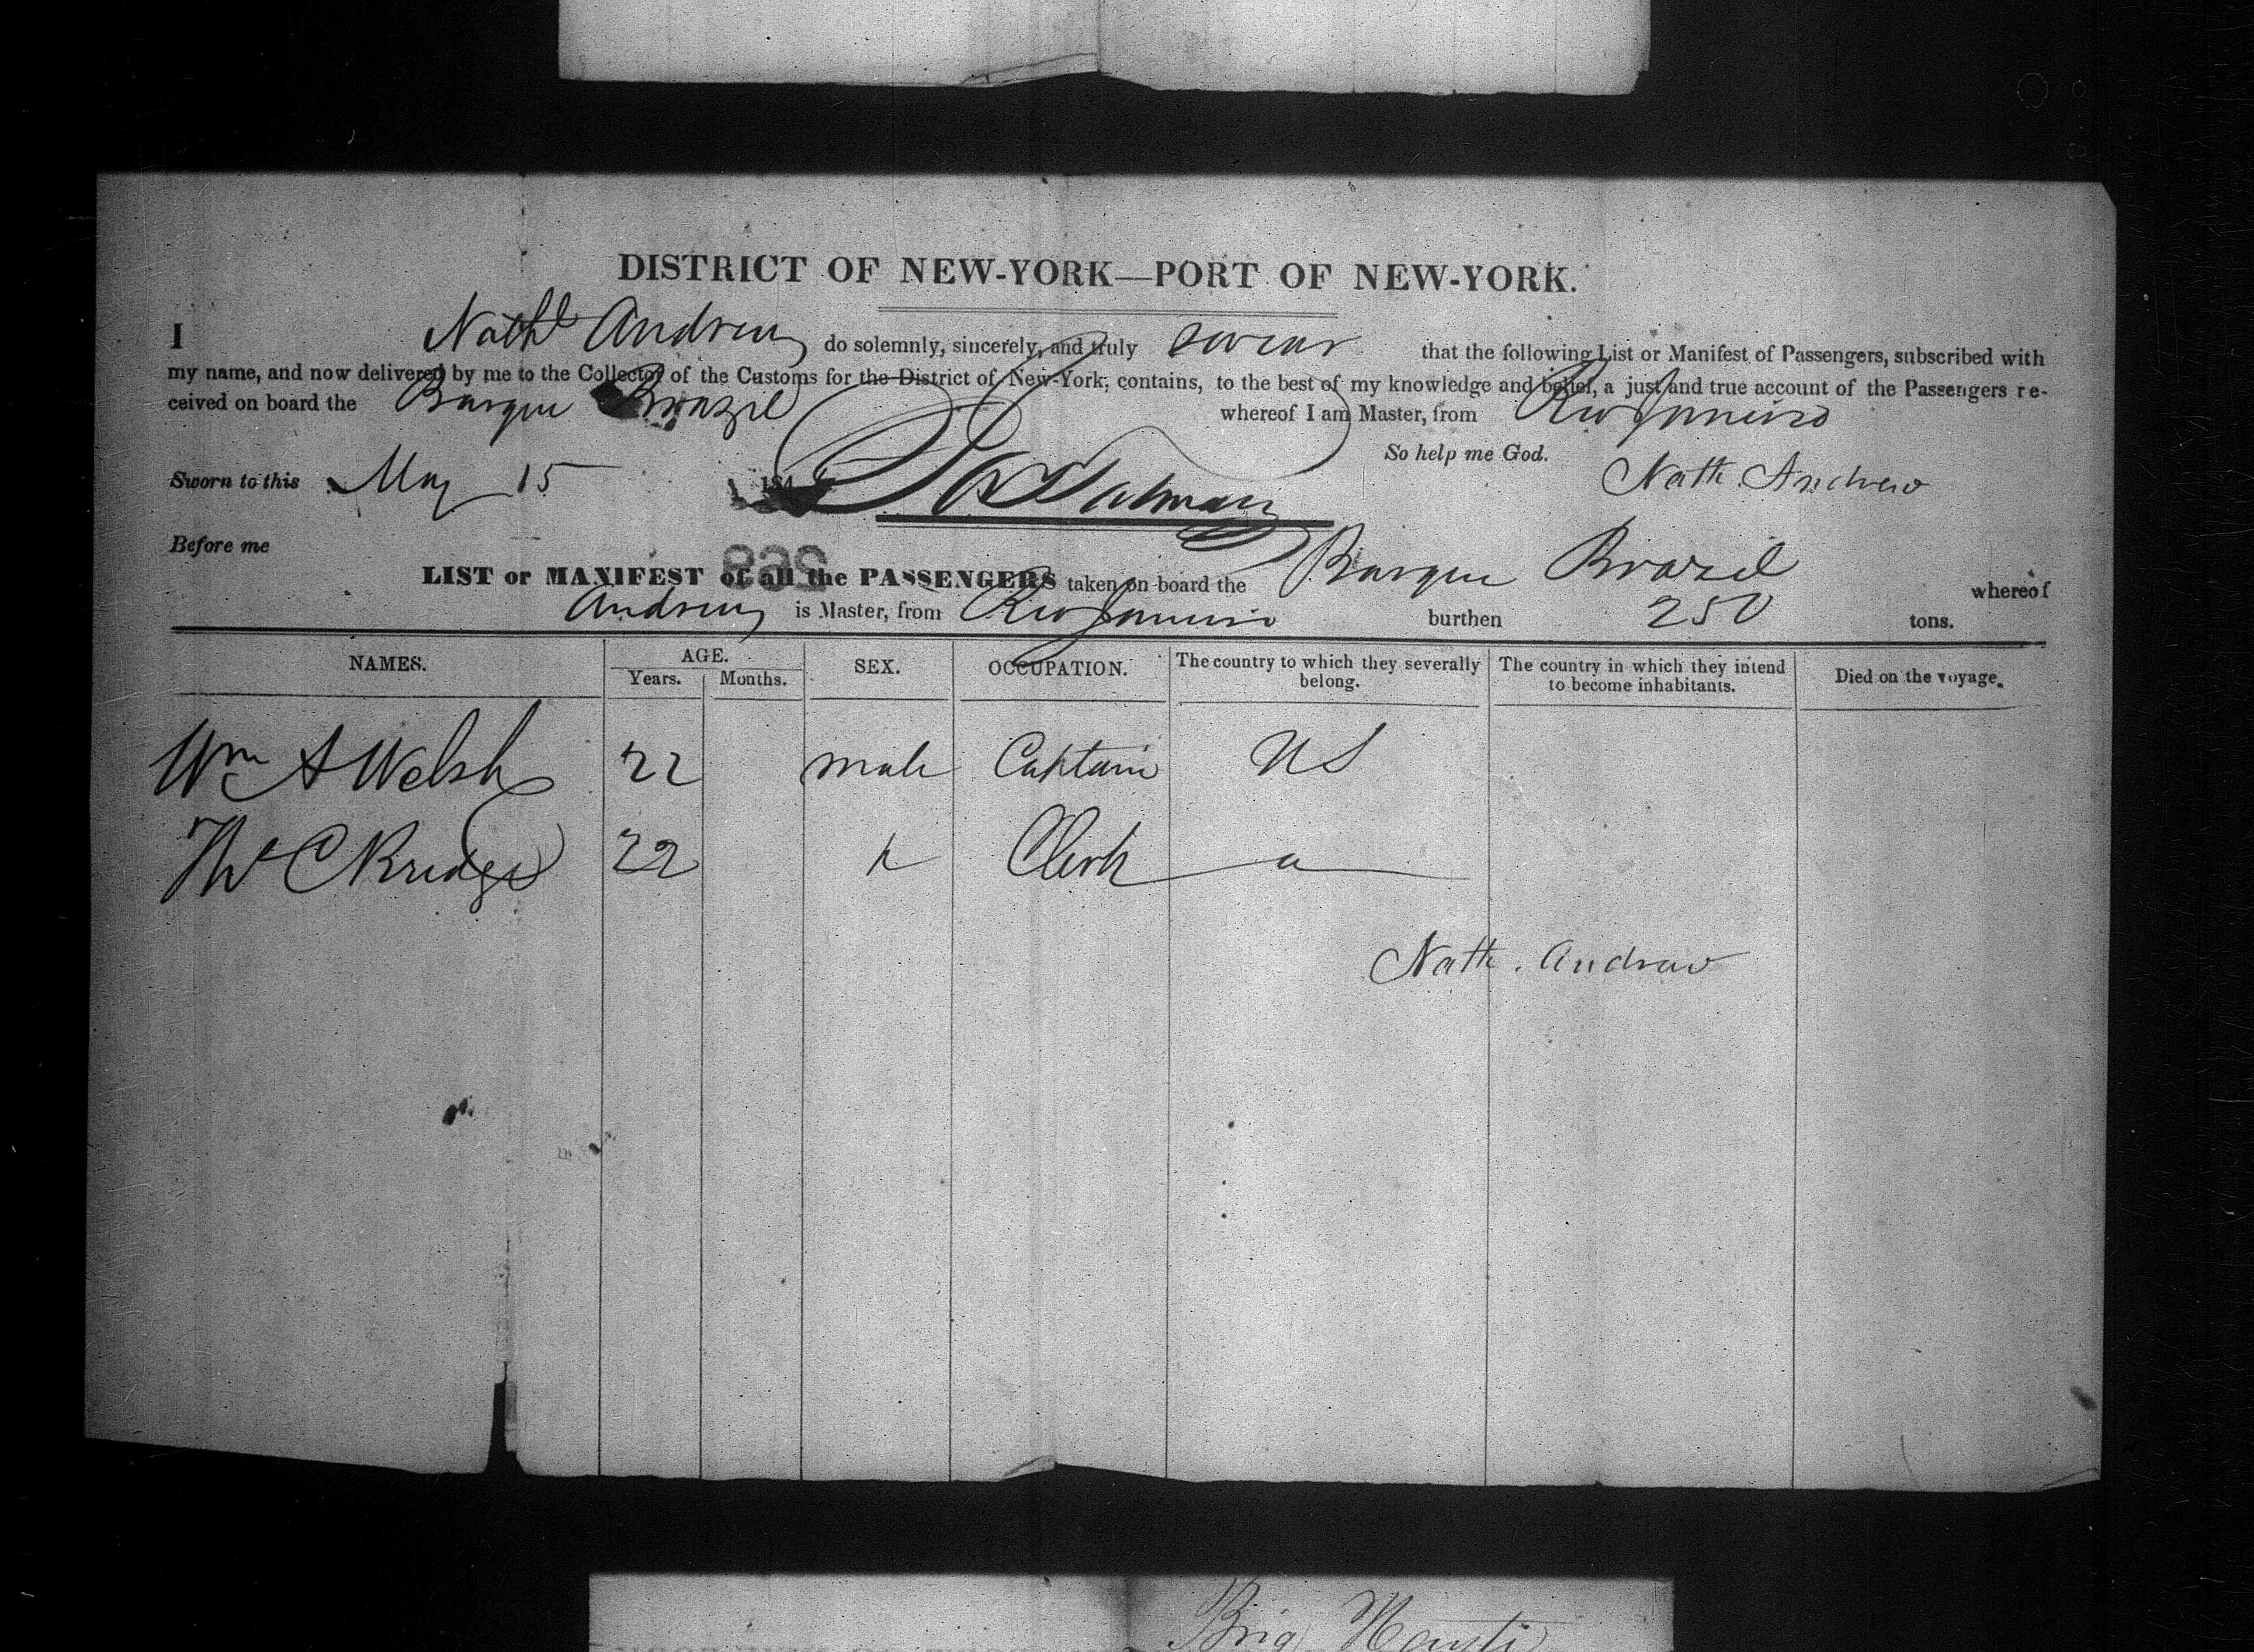 DISTRICT OF NEW-YORK—PORT OF NEW-YORK.
I Nathl Andrews do solemnly, sincerely, and truly swear that the following List or Manifest of Passengers, subscribed with
my name, and now delivered by me to the Collector of the Customs for the District of New-York, contains, to the best of my knowledge and belief, a just and true account of the Passengers re-
ceived on board the Barque Brazil whereof I am Master, from Rio Janeiro
So help me God.
Sworn to this May 15 184 Nath. Andrew
Before me
LIST or MANIFEST of all the PASSENGERS taken on board the Barque Brazil whereof
Andrews is Master, from Rio Janeiro burthen 250 tons.
NAMES. AGE. SEX. OCCUPATION. The country to which they severally belong. The country in which they intend to become inhabitants. Died on the voyage.
Years. Months.
Wm A Welsh 22 male Captain US
Thos C 22 Clerk
Nath. Andrew
Brig